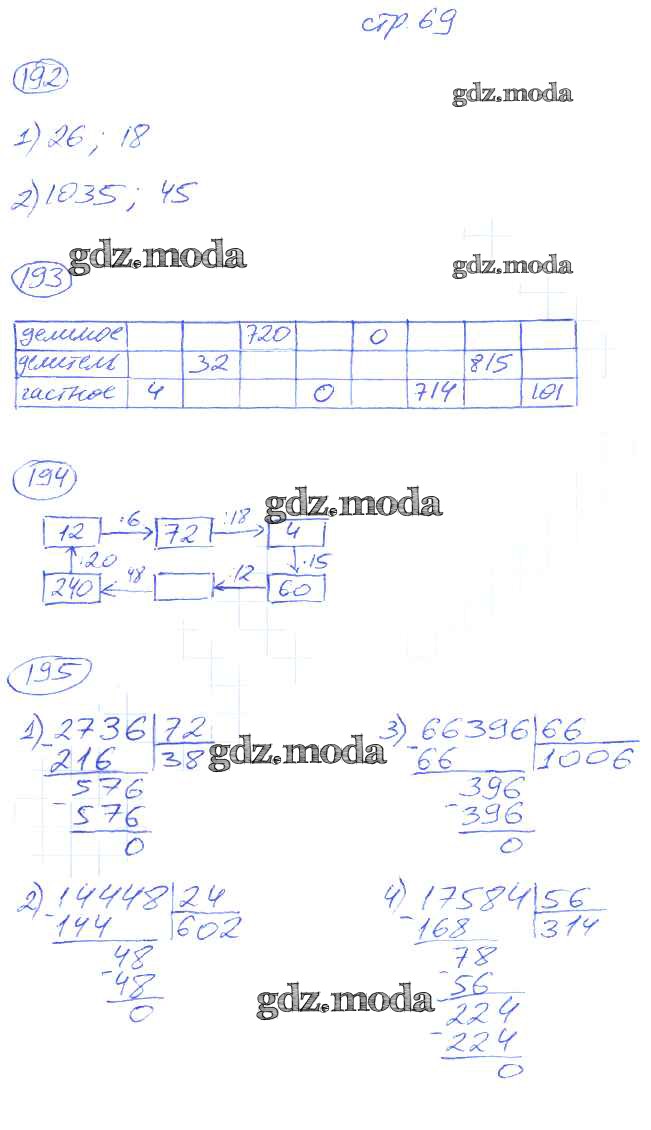 стр. 69
192
gdz.moda
1) 26 ; 18
2) 1035 ; 45
193 gdz.moda gdz.moda
делимое 720 0
делитель 32 815
частное 4 0 714 101
194
gdz.moda
12 :6 72 :18 4
:20 .15
240 48 :12 60
195
1) - 2736 72
216 38
- 576
576
0
gdz.moda
3) - 66396 66
66 1006
- 396
396
0
2) - 14448 24
144 602
- 48
48
0
gdz.moda
4) - 17584 56
168 314
- 78
56
- 224
224
0